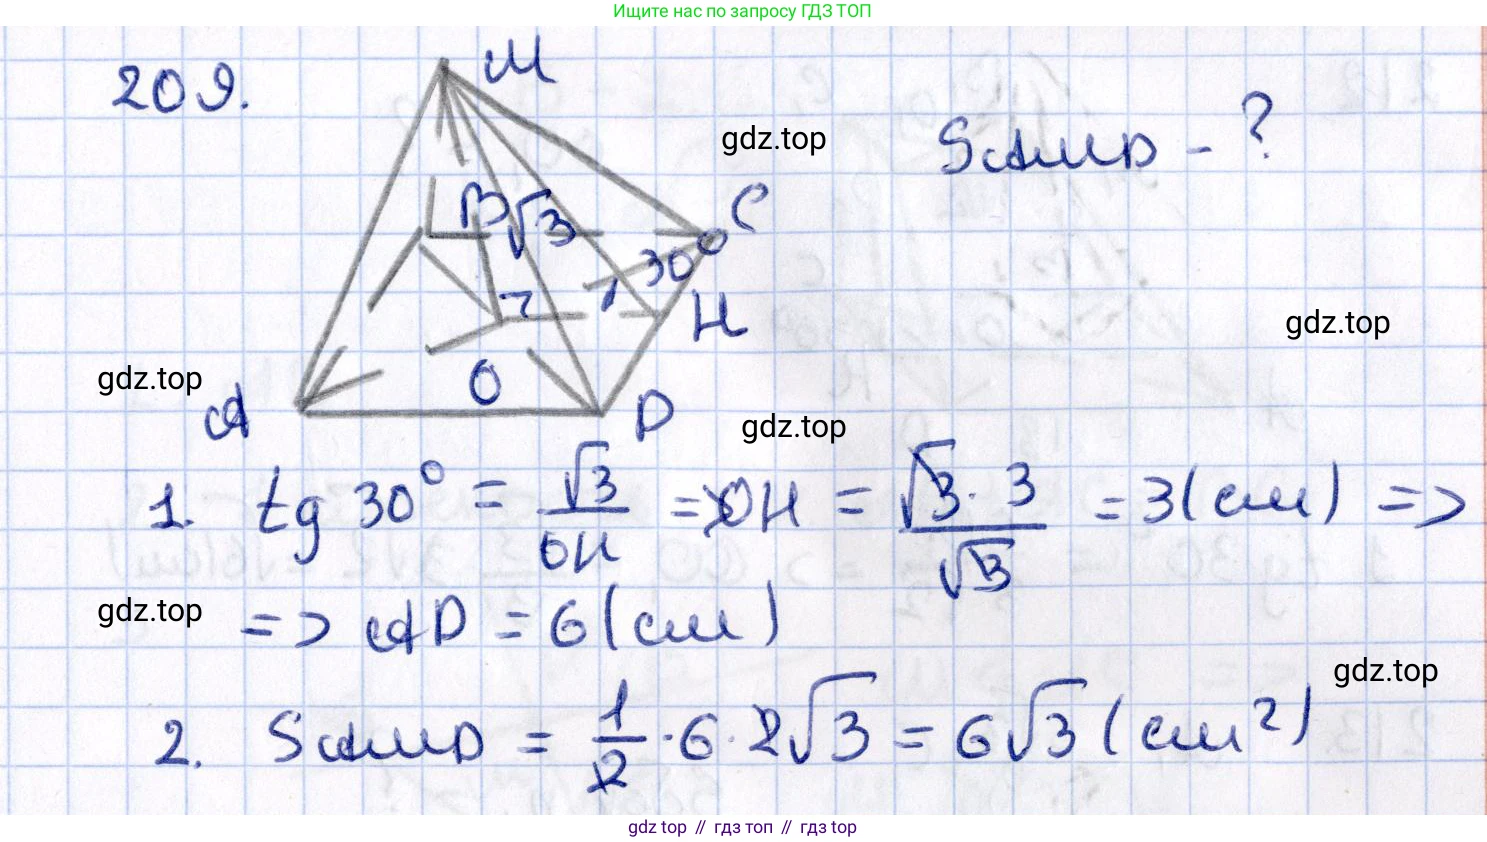 Ищите нас по запросу ГДЗ ТОП
209.
M
gdz.top
S AMD - ?
B
√3
C
30°
H
gdz.top
gdz.top
O
A
D
gdz.top
1. tg 30° = √3/OH => OH = √3·3/√3 = 3(см) =>
gdz.top
=> AD = 6(см)
gdz.top
2. S AMD = 1/2 · 6 · 2√3 = 6√3 (см²)
gdz top // гдз топ // гдз top